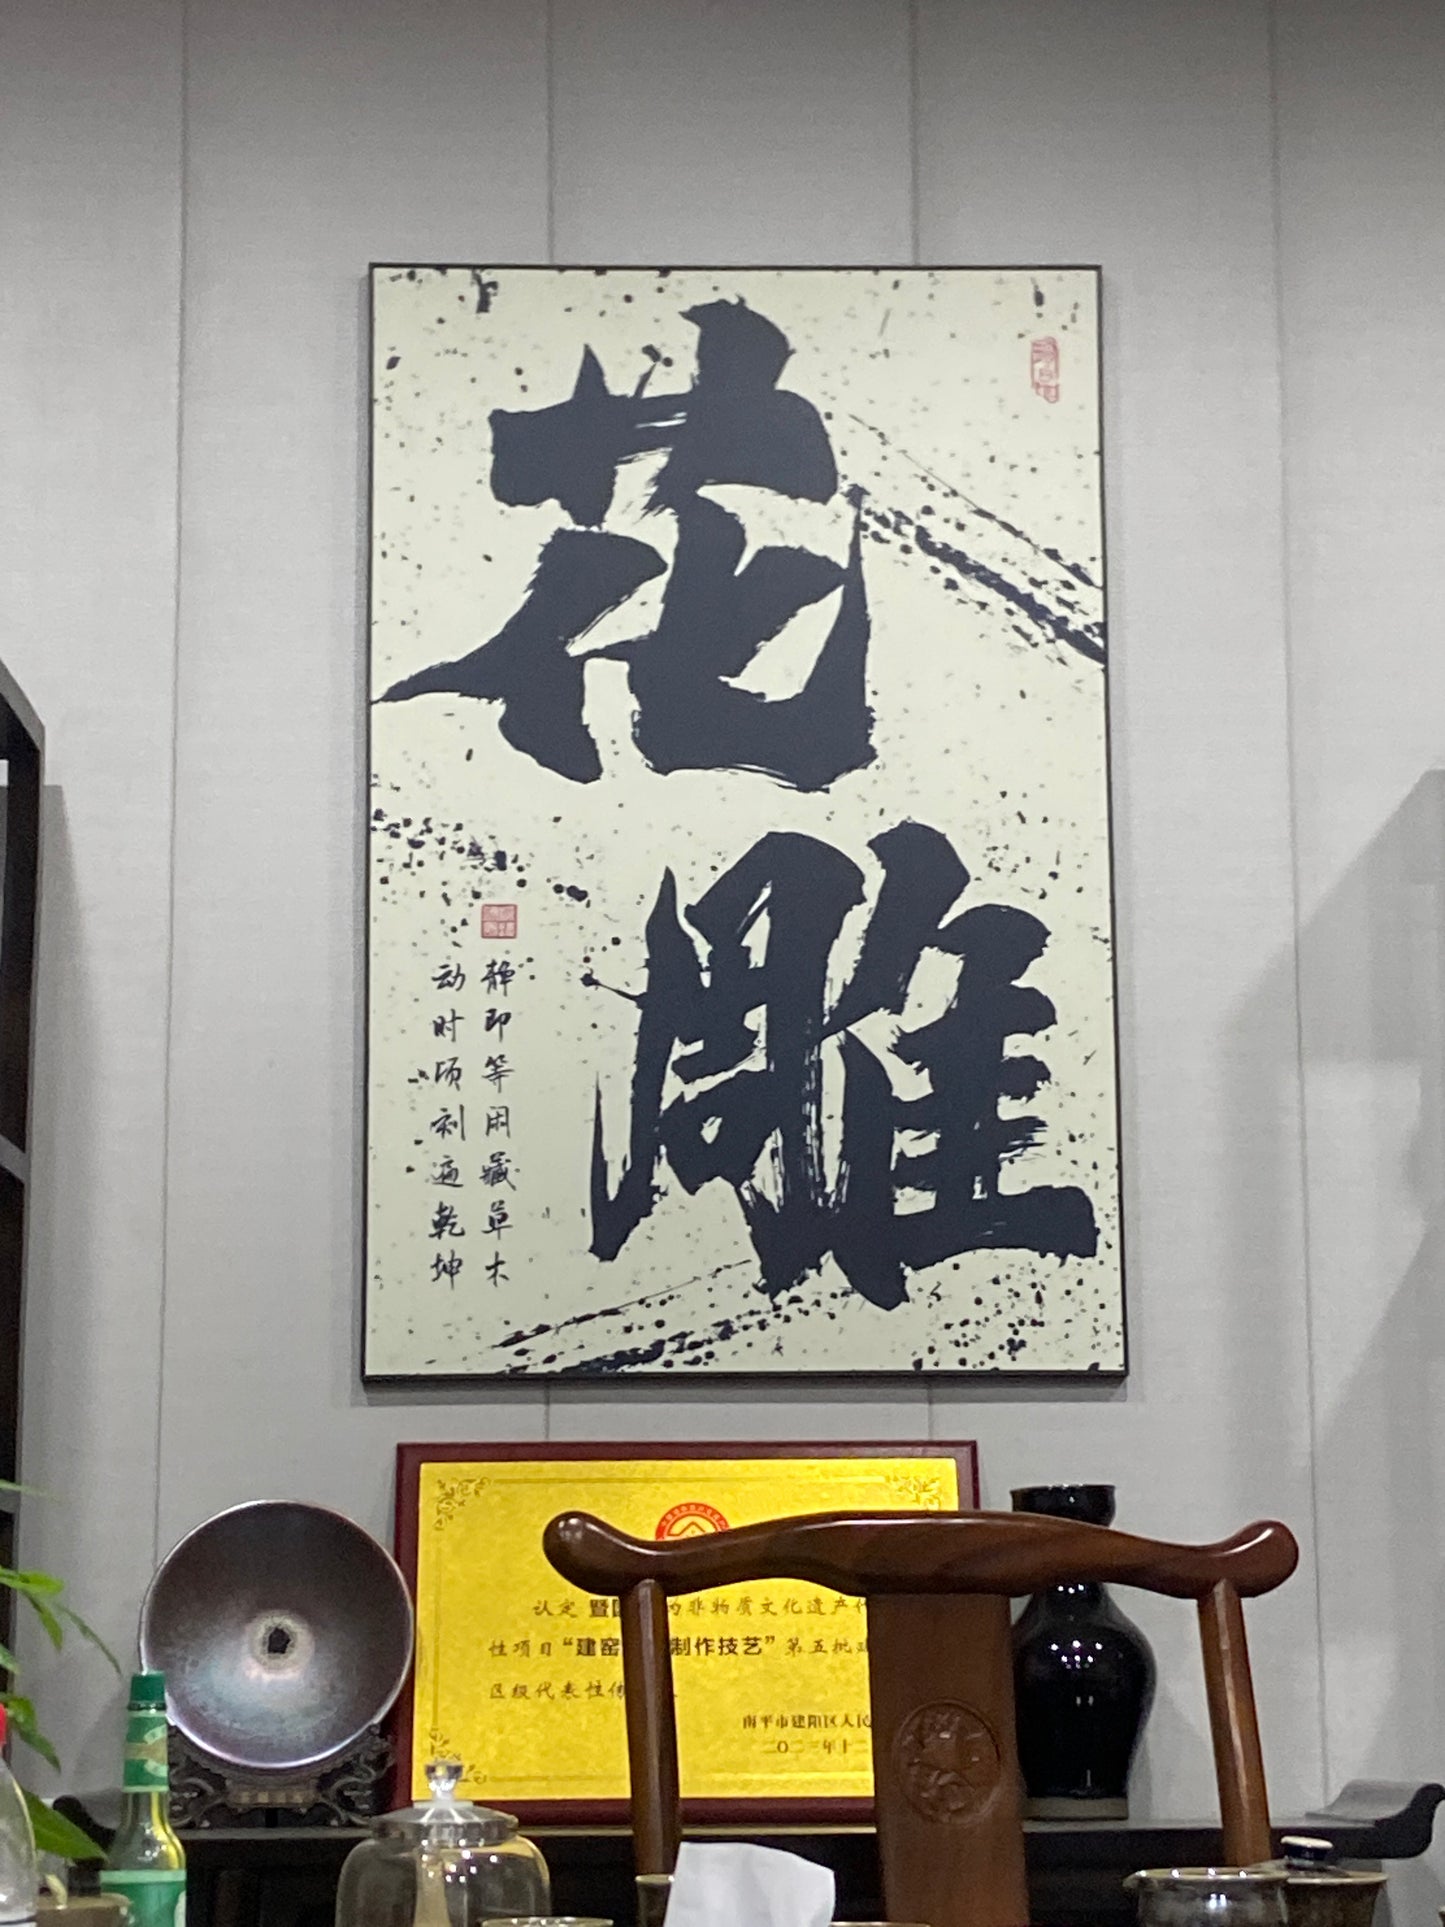 花雕
静即等闲藏草木
动时顷刻遍乾坤
认定 暨 为非物质文化遗产代
性项目“建窑 制作技艺”第五批
区级代表性传
南平市建阳区人民
二〇二三年十二